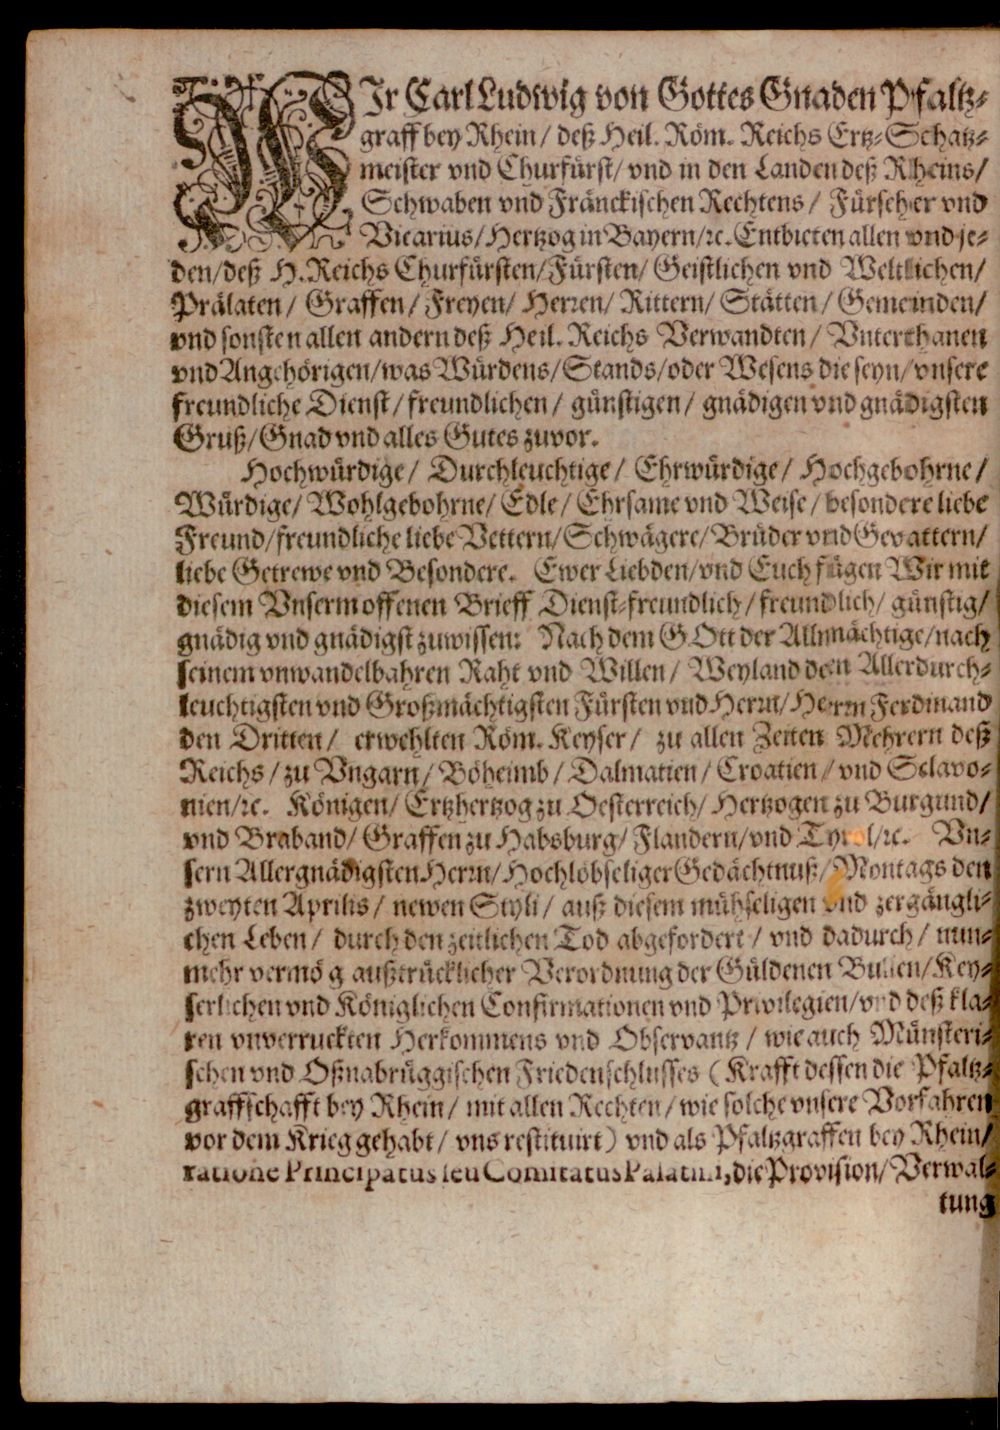 WIr Carl Ludwig von Gottes Gnaden Pfaltz-
graff bey Rhein / deß Heil. Röm. Reichs Ertz-Schatz-
meister vnd Churfürst / vnd in den Landen deß Rheins /
Schwaben vnd Fränckischen Rechtens / Fürseher vnd
Vicarius / Hertzog in Bayern / ꝛc. Entbieten allen vnd je-
den / deß H. Reichs Churfürsten / Fürsten / Geistlichen vnd Weltlichen /
Prälaten / Graffen / Freyen / Herꝛen / Rittern / Stätten / Gemeinden /
vnd sonsten allen andern deß Heil. Reichs Verwandten / Vnterthanen
vnd Angehörigen / was Würdens / Stands / oder Wesens die seyn / vnsere
freundliche Dienst / freundlichen / günstigen / gnädigen vnd gnädigsten
Gruß / Gnad vnd alles Gutes zuvor.
Hochwürdige / Durchleuchtige / Ehrwürdige / Hochgebohrne /
Würdige / Wohlgebohrne / Edle / Ehrsame vnd Weise / besondere liebe
Freund / freundliche liebe Vettern / Schwägere / Brüder vnd Gevattern /
liebe Getrewe vnd Besondere. Ewer Liebden / vnd Euch fügen Wir mit
diesem Vnserm offenen Brieff Dienst-freundlich / freundlich / günstig /
gnädig vnd gnädigst zuwissen: Nach dem GOtt der Allmächtige / nach
seinem vnwandelbahren Raht vnd Willen / Weyland dem Allerdurch-
leuchtigsten vnd Großmächtigsten Fürsten vnd Herꝛn / Herꝛn Ferdinand
den Dritten / erwehlten Röm. Keyser / zu allen Zeiten Mehrern deß
Reichs / zu Vngarn / Böheimb / Dalmatien / Croatien / vnd Sclavo-
nien / ꝛc. Königen / Ertzhertzog zu Oesterreich / Hertzogen zu Burgund /
vnd Braband / Graffen zu Habsburg / Flandern / vnd Tyrol / ꝛc. Vn-
sern Allergnädigsten Herꝛn / Hochlobseliger Gedächtnuß / Montags den
zweyten Aprilis / newen Styli / auß diesem mühseligen vnd zergängli-
chen Leben / durch den zeitlichen Tod abgefordert / vnd dadurch / nun-
mehr vermög außtrücklicher Verordnung der Güldenen Bullen / Key-
serlichen vnd Königlichen Confirmationen vnd Privilegien / vnd deß kla-
ren vnverruckten Herkommens vnd Observantz / wie auch Münsteri-
schen vnd Oßnabrüggischen Friedenschlusses (Krafft dessen die Pfaltz-
graffschafft bey Rhein / mit allen Rechten / wie solche vnsere Vorfahren
vor dem Krieg gehabt / vns restituirt) vnd als Pfaltzgraffen bey Rhein /
ratione Principatus seu Comitatus Palatini, die Provision / Verwal-
tung